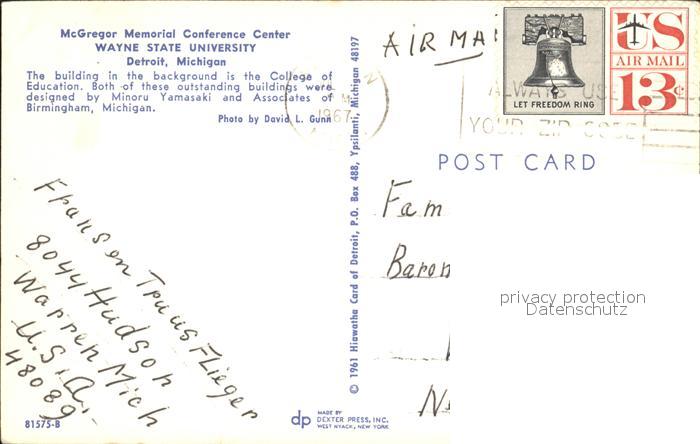 McGregor Memorial Conference Center
WAYNE STATE UNIVERSITY
Detroit, Michigan
The building in the background is the College of
Education. Both of these outstanding buildings were
designed by Minoru Yamasaki and Associates of
Birmingham, Michigan.
Photo by David L. Gunn
Fransen Truus Flieger
8044 Hudson
Warren Mich
U.S.A.
48089-
81575-B
© 1961 Hiawatha Card of Detroit, P.O. Box 488, Ypsilanti, Michigan 48197
dp MADE BY
DEXTER PRESS, INC.
WEST NYACK, NEW YORK
AIR MAI
1967
LET FREEDOM RING
US
AIR MAIL
13c
ALWAYS USE
YOUR ZIP CODE
POST CARD
Fam
Baron
privacy protection
Datenschutz
N